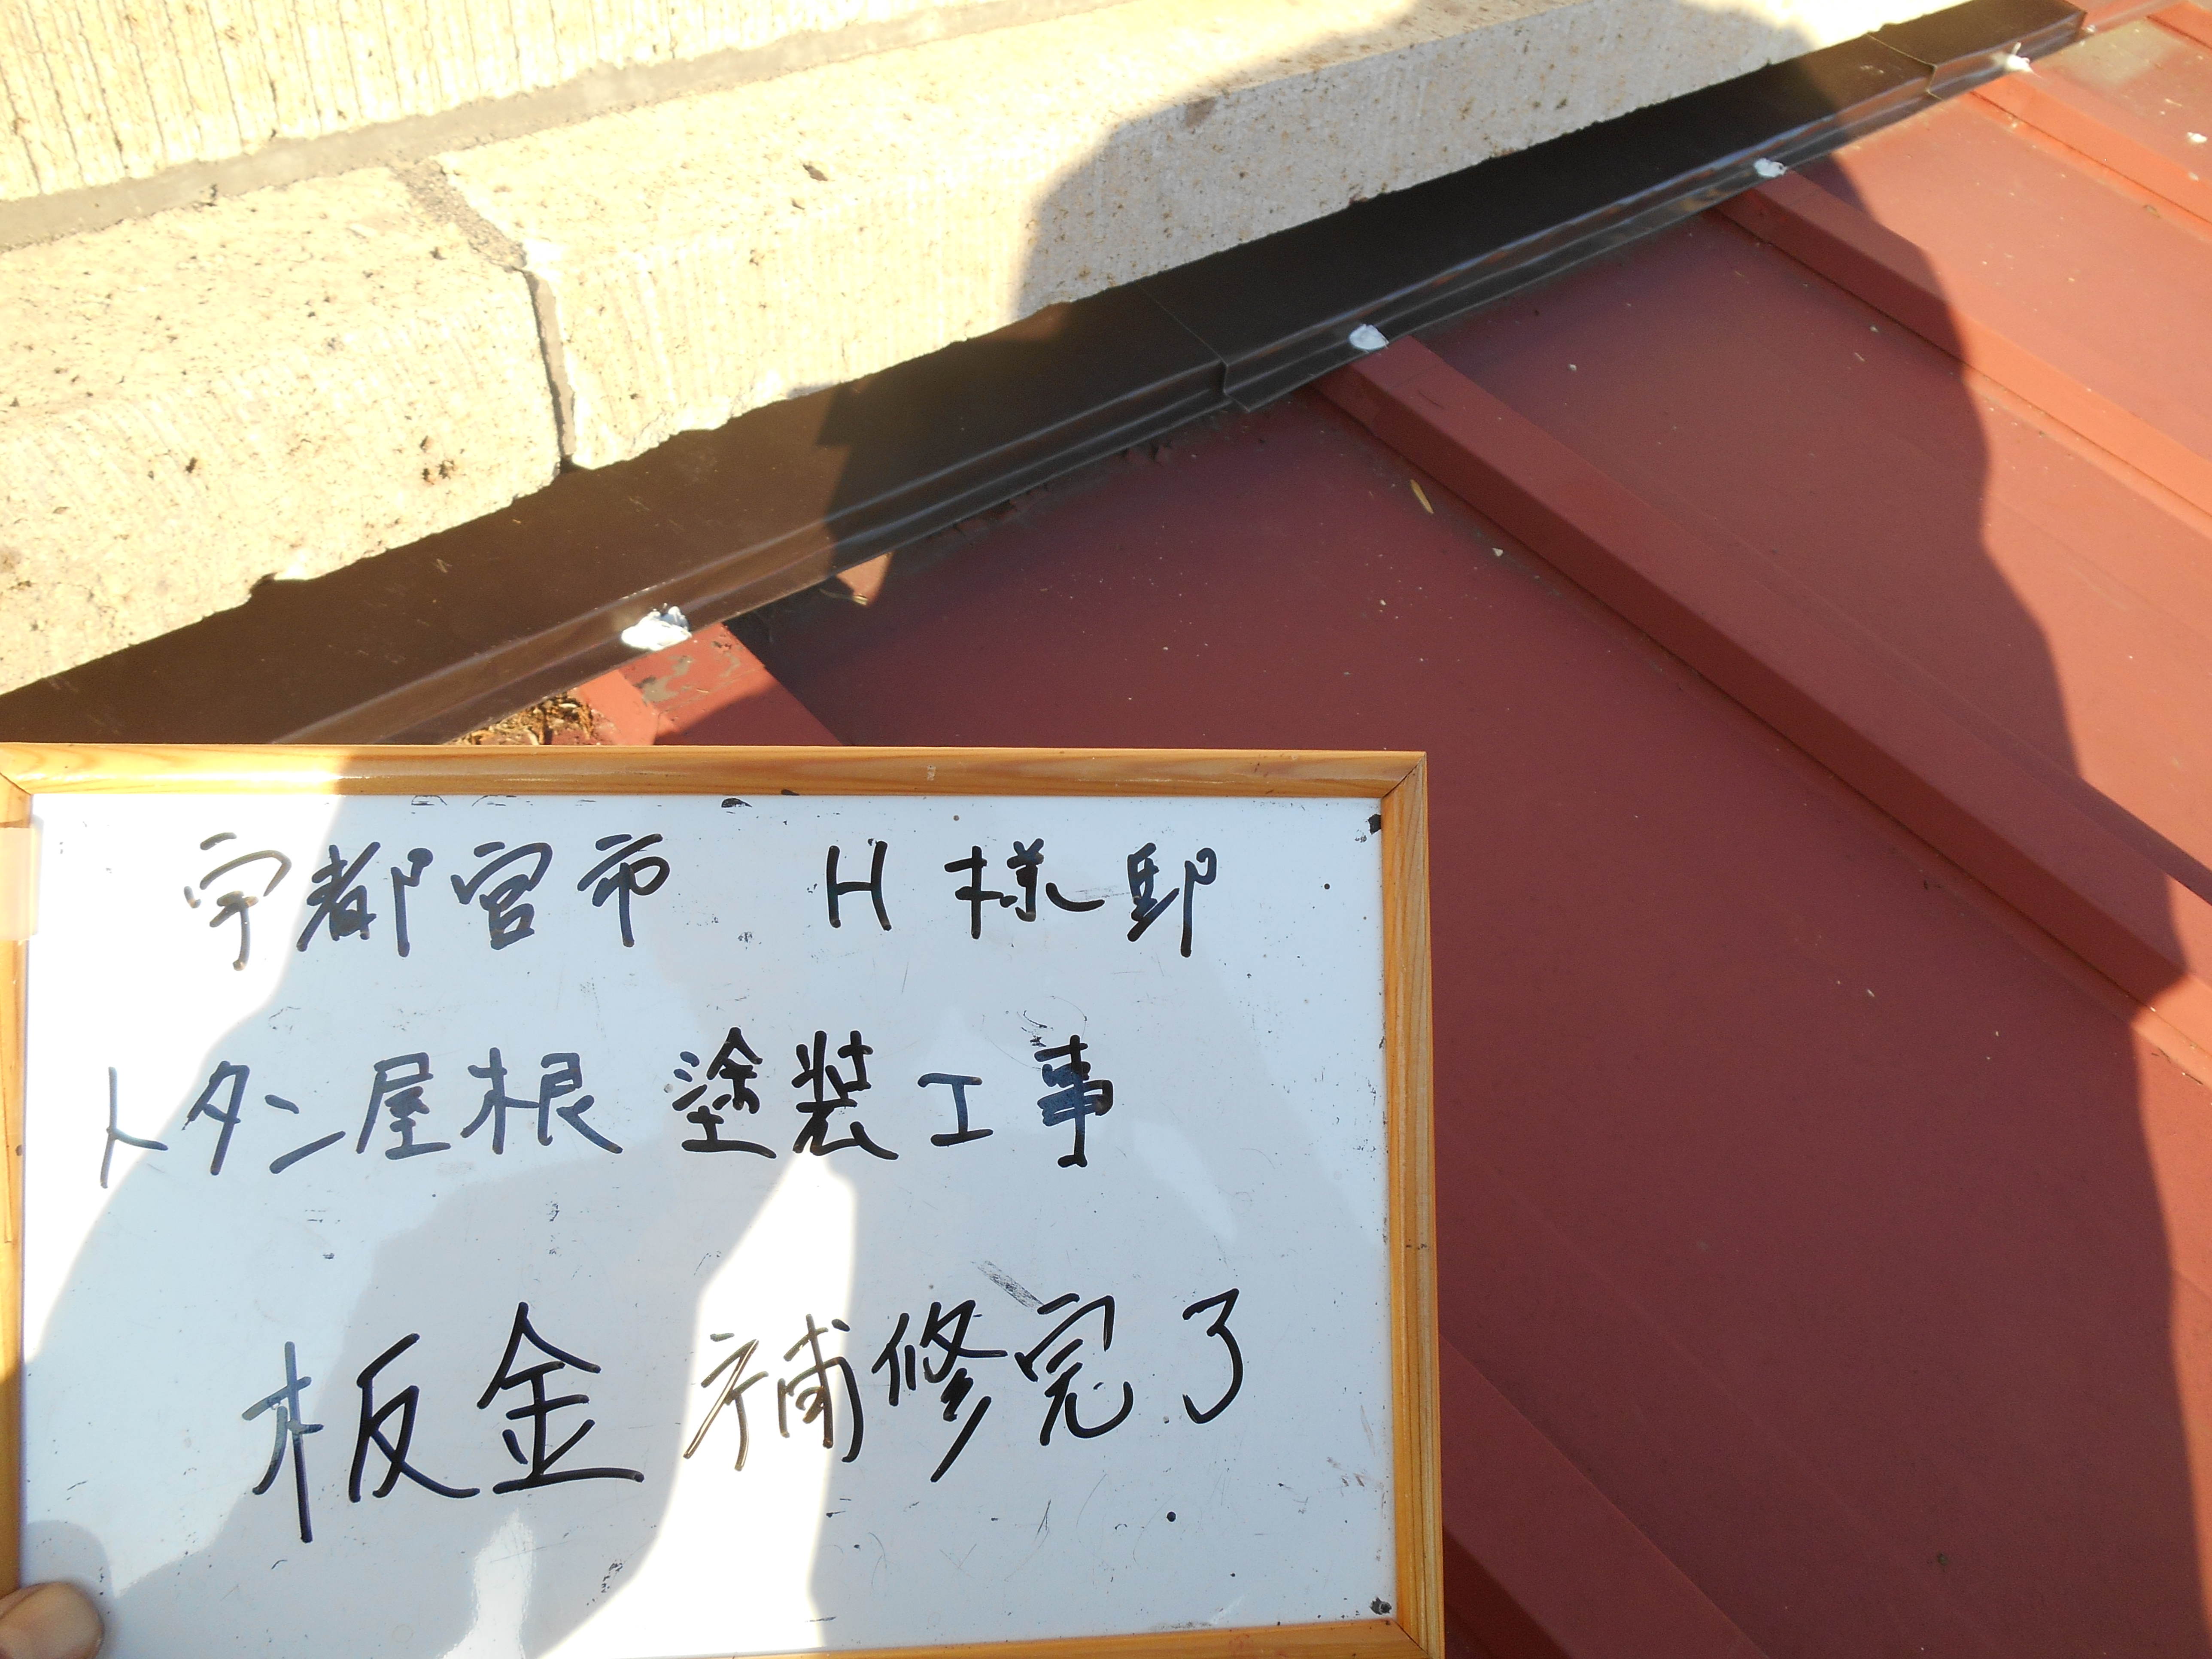 宇都宮市 H様邸
トタン屋根塗装工事
板金補修完了